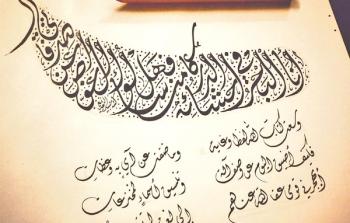 أنا البحر في أحشائه الدر كامن فهل سألوا الغواص عن صدفاتي
وسعت كتاب الله لفظا وغاية وما ضقت عن آي به وعظات
فكيف أضيق اليوم عن وصف آلة وتنسيق أسماء لمخترعات
أيهجرني قومي عفا الله عنهم إلى لغة